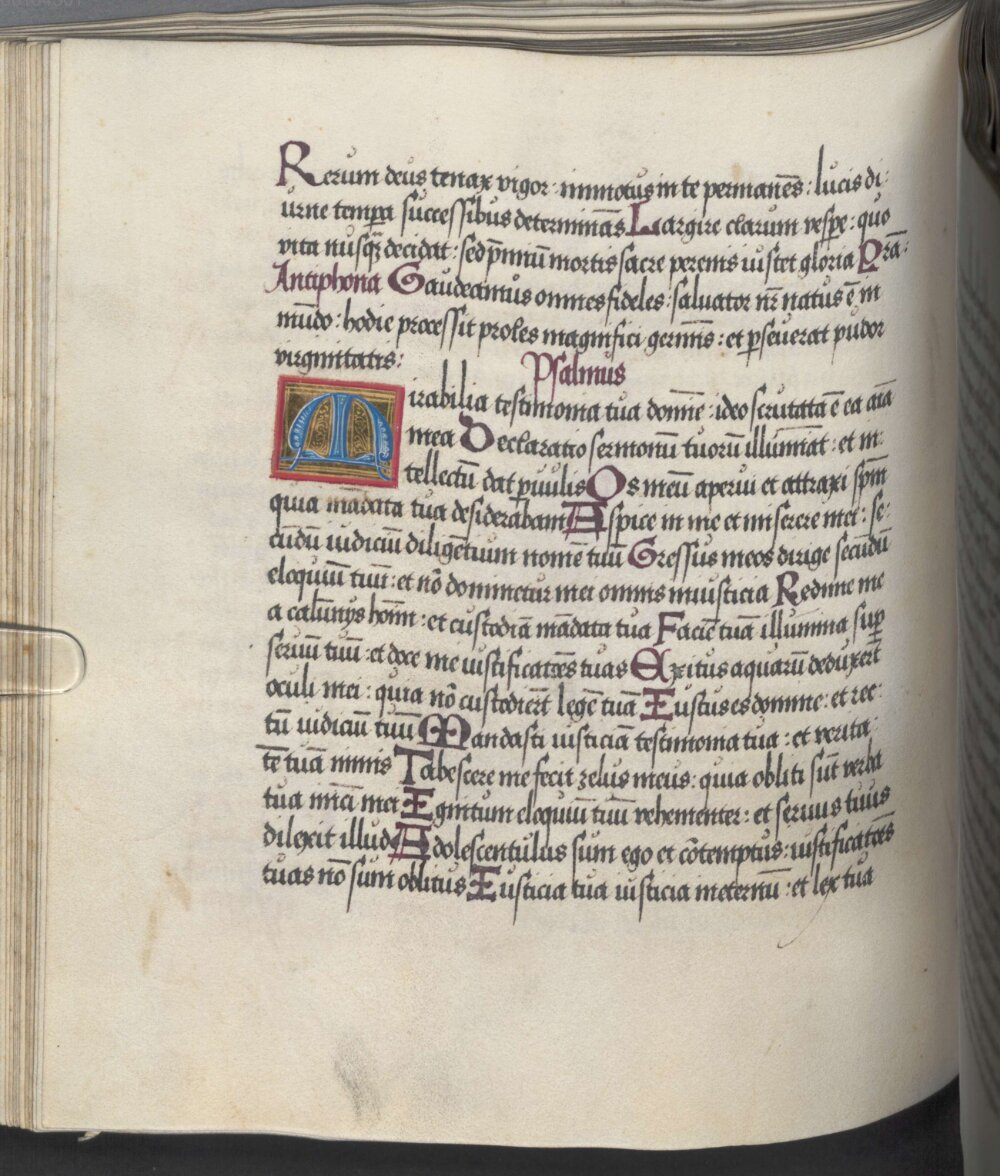 Rerum deus tenax vigor: immotus in te permanēs: lucis di:
urne temp̄a successibus determinās Largire clarum vesp̄e: quo
vita nusq̄ȝ decidat: sed p̄miū mortis sacre perenis iustet gloria Prā:
Antiphona Gaudeamus omnes fideles: saluator nr̄ natus ē in
mūdo: hodie processit proles magnifici germīs: et p̱seuerat pudor
virginitatis:
Psalmus
Mirabilia testimonia tua domīe: ideo scrutata ē ea aīa
mea Declaratio sermonū tuorū illumīat: et in:
tellectū dat p̱uulis Os meū aperui et attraxi sp̄m
quia mādata tua desiderabam Aspice in me et miserere mei: se:
cūdū iudiciū diligētium nomē tuū Gressus meos dirige secūdū
eloquiū tuū: et nō dominetur mei omnis iniusticia Redime me
a calūnijs hoīm: et custodiā mādata tua Faciē tuā illumina sup̱
seruū tuū: et doce me iustificatōes tuas Exitus aquarū deduxert̄
oculi mei: quia nō custodiert̄ legē tuā Iustus es domine: et rec:
tū iudiciū tuū Mandasti iusticiā testimonia tua: et verita:
tē tuā nimis Tabescere me fecit zelus meus: quia obliti sūt verba
tua mīci mei Ignitum eloquiū tuū vehementer: et seruus tuus
dilexit illud Adolescentulus sum ego et cōtemptus: iustificatōes
tuas nō sum oblitus Iusticia tua iusticia ineternū: et lex tua